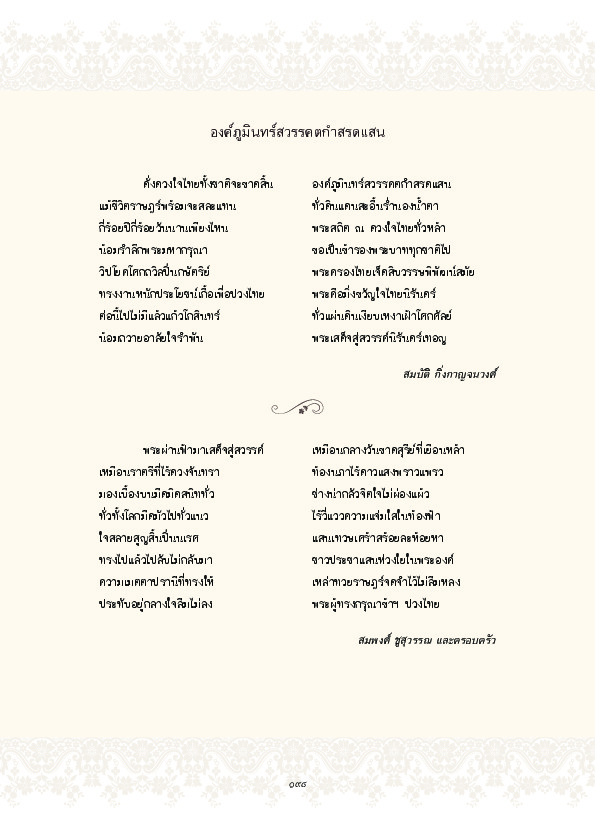 องค์ภูมินทร์สวรรคตกำสรดแสน
ดั่งดวงใจไทยทั้งชาติจะขาดสิ้น องค์ภูมินทร์สวรรคตกำสรดแสน
แม้ชีวิตราษฎร์พร้อมจะสละแทน ทั่วดินแดนสะอื้นร่ำนองน้ำตา
กี่ร้อยปีกี่ร้อยวันนานเพียงไหน พระสถิต ณ ดวงใจไทยทั่วหล้า
น้อมรำลึกพระมหากรุณา ขอเป็นข้ารองพระบาททุกชาติไป
วิปโยคโศกถวิลปิ่นกษัตริย์ พระครองไทยเจ็ดสิบวรรษพิพัฒน์สมัย
ทรงงานหนักประโยชน์เกื้อเพื่อปวงไทย พระคือมิ่งขวัญใจไทยนิรันดร์
ต่อนี้ไปไม่มีแล้วแก้วโกสินทร์ ทั่วแผ่นดินเงียบเหงาเฝ้าโศกศัลย์
น้อมถวายอาลัยใจรำพัน พระเสด็จสู่สวรรค์นิรันดร์เทอญ
สมบัติ กิ่งกาญจนวงศ์
พระผ่านฟ้ามาเสด็จสู่สวรรค์ เหมือนกลางวันขาดสุรีย์ที่เยือนหล้า
เหมือนราตรีที่ไร้ดวงจันทรา ท้องนภาไร้ดาวแสงพราวแพรว
มองเบื้องบนมืดมิดสนิททั่ว ช่างน่ากลัวจิตใจไม่ผ่องแผ้ว
ทั่วทั้งโลกมืดมัวไปทั่วแนว ไร้วี่แววความแจ่มใสในท้องฟ้า
ใจสลายสูญสิ้นปิ่นนเรศ แสนเทวษเศร้าสร้อยละห้อยหา
ทรงไปแล้วไปลับไม่กลับมา ชาวประชาแสนห่วงใยในพระองค์
ความเมตตาปรานีที่ทรงให้ เหล่าทวยราษฎร์จดจำไว้ไม่ลืมหลง
ประทับอยู่กลางใจลืมไม่ลง พระผู้ทรงกรุณาข้าฯ ปวงไทย
สมพงศ์ ชูสุวรรณ และครอบครัว
๑๙๘